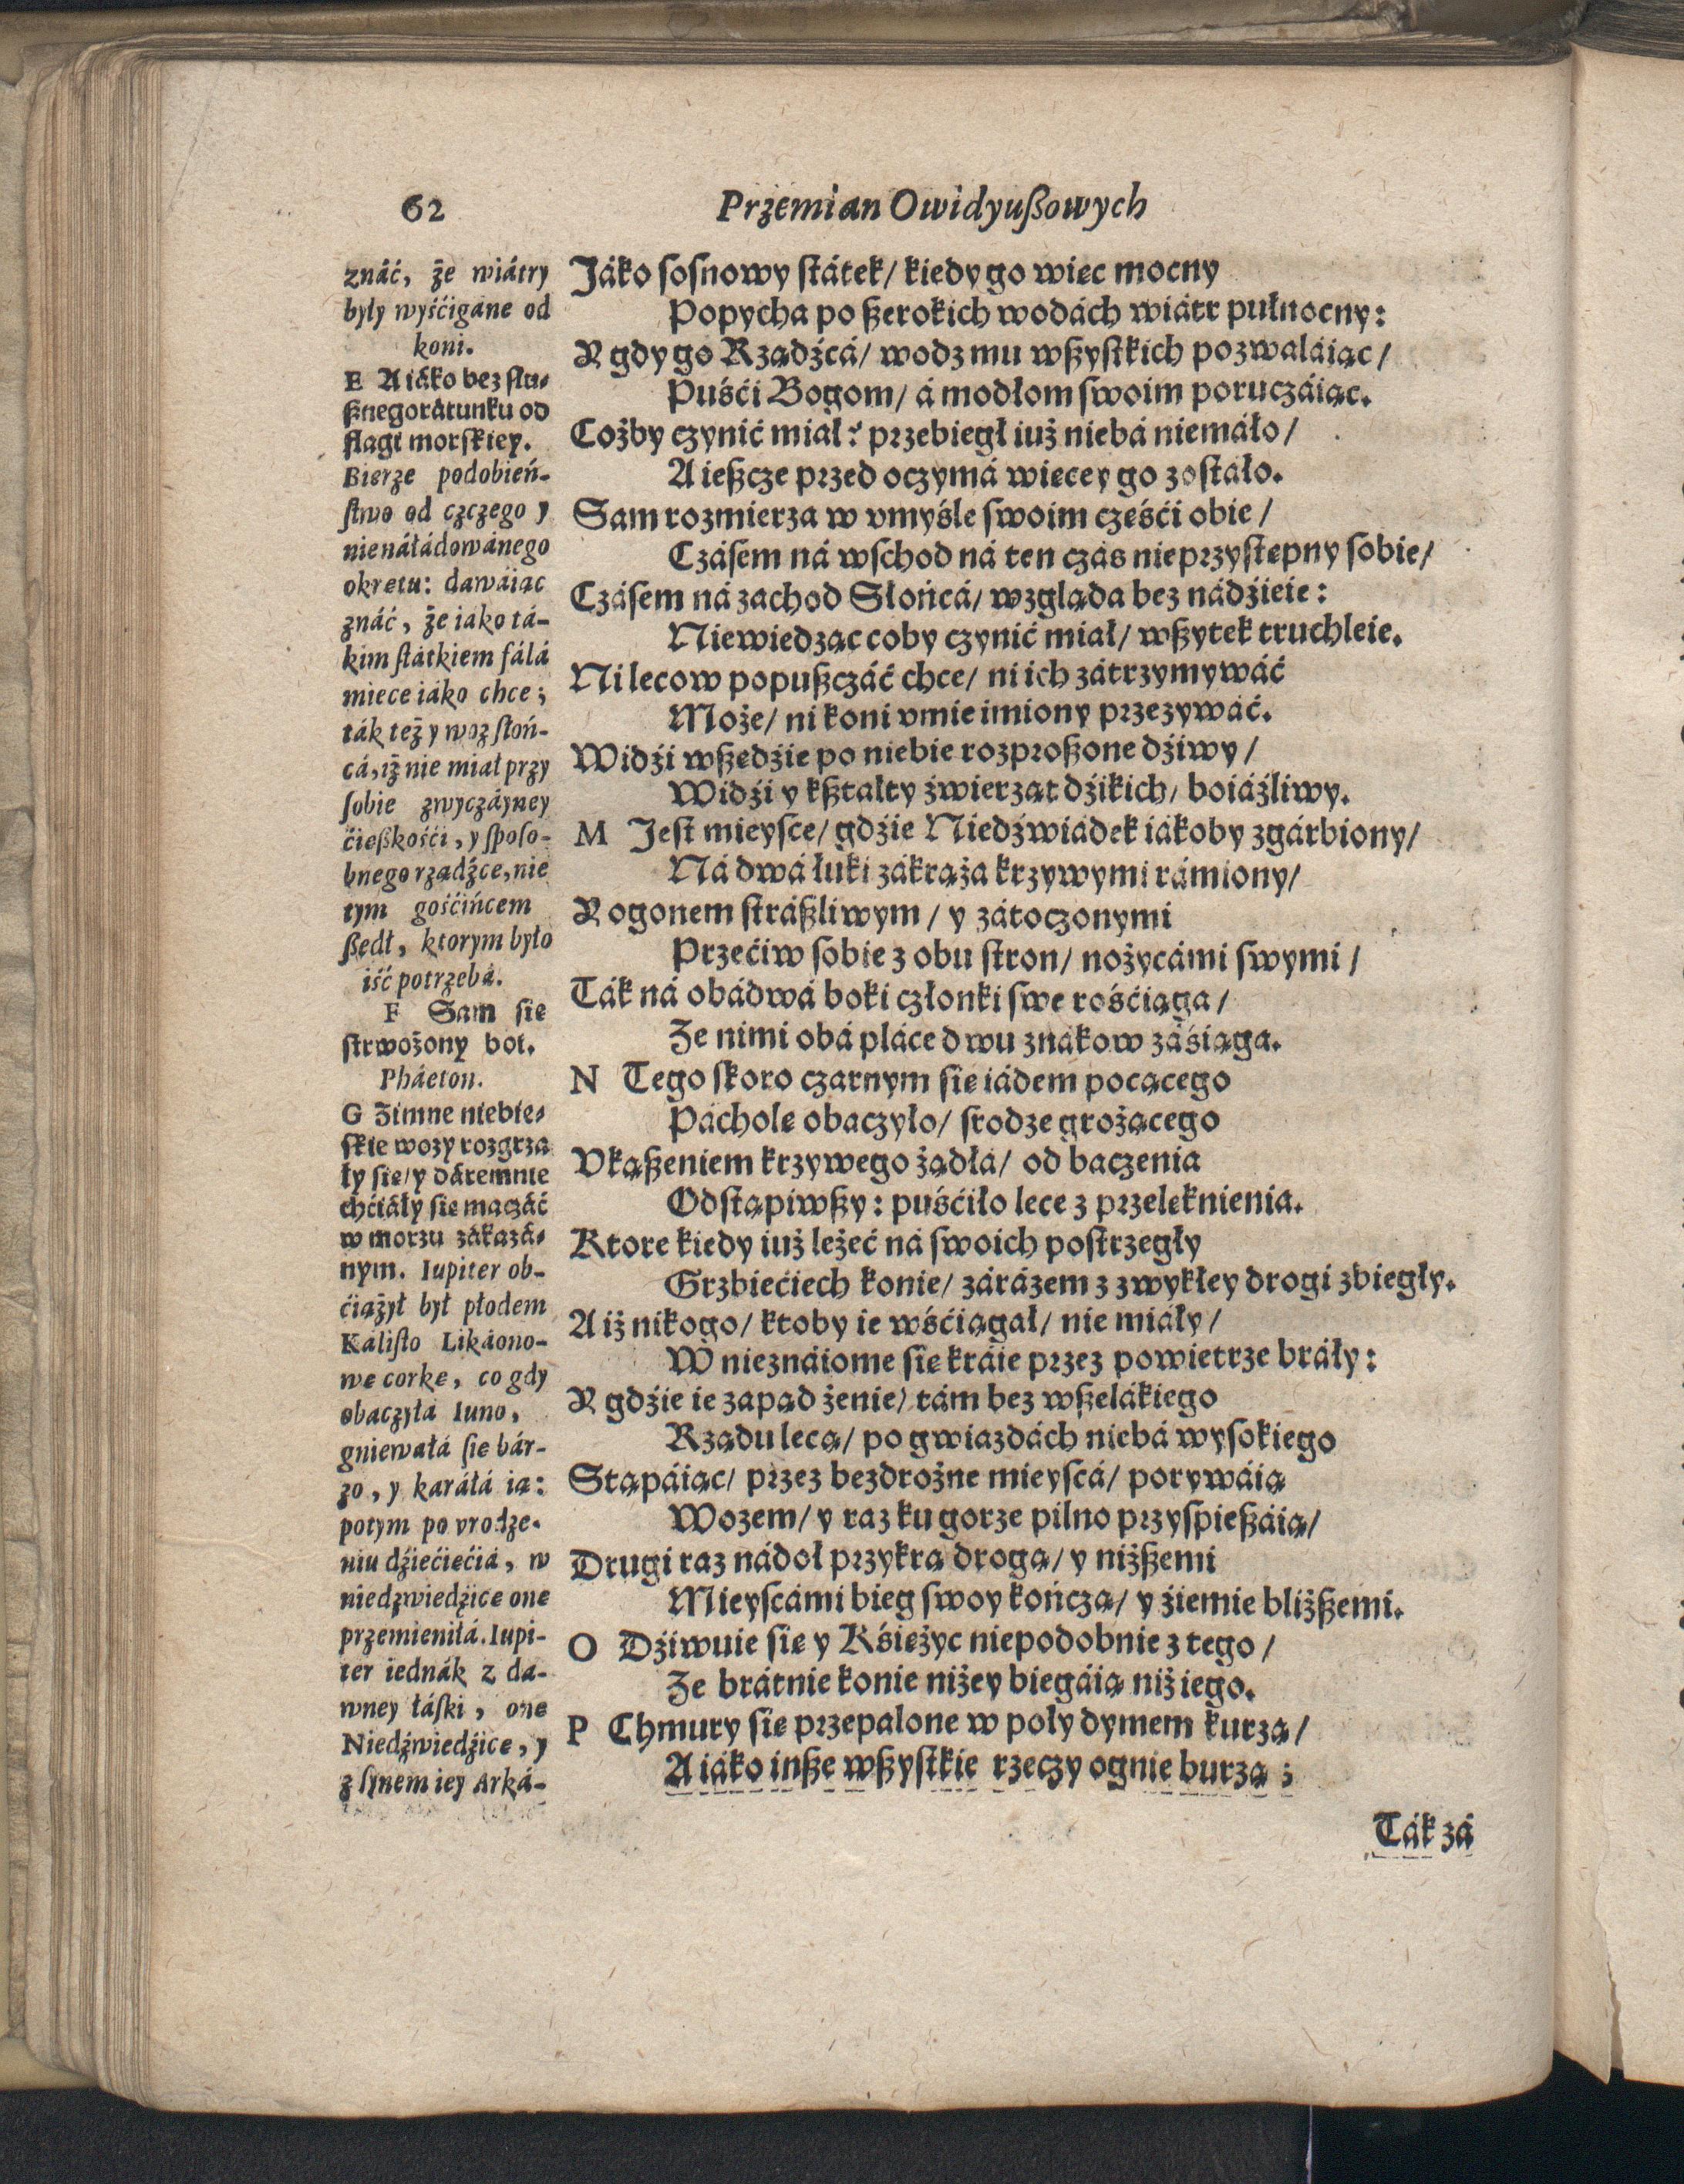 62
Przemian Owidyußowych
znáć, że wiátry
były wyśćigáne od
koni.
E A iáko bez słu-
ßnego rátunku od
flagi morskiey.
Bierze podobień-
stwo od czczego y
nienáłádowánego
okretu: dawáiąc
znáć, że iako tá-
kim státkiem fálá
miece iáko chce;
ták też y woz słoń-
cá, iż nie miał przy
sobie zwyczáyney
ćieszkośći, y sposo-
bnego rządźce, nie
tym gośćińcem
ßedł, ktorym było
iść potrzebá.
F Sam sie
strwożony boi.
Pháeton.
G Zimne niebie-
skie wozy rozgrza
ły sie/ y dáremnie
chćiáły sie maczáć
w morzu zákazá-
nym. Iupiter ob-
ćiążył był płodem
Kálisto Likáono-
we corke, co gdy
obaczyłá Iuno,
gniewáłá sie bár-
zo, y karáłá ią:
potym po vrodze-
niu dźiećiećiá, w
niedzwiedźice one
przemieniłá. Iupi-
ter iednák z da-
wney łáski, one
Niedźwiedźice, y
z synem iey Arká-
Jáko sosnowy státek/ kiedy go wiec mocny
Popycha po ßerokich wodách wiátr pułnocny:
Y gdy go Rządźcá/ wodz mu wßystkich pozwaláiąc/
Puśći Bogom/ á modłom swoim poruczáiąc.
Cożby czynić miał? przebiegł iuż niebá niemáło/
A ießcze przed oczymá wiecey go zostało.
Sam rozmierza w vmyśle swoim cześći obie/
Czásem ná wschod ná ten czás nieprzystepny sobie/
Czásem ná zachod Słońcá/ wzgląda bez nádźieie:
Niewiedząc coby czynić miał/ wßytek truchleie.
Ni lecow popußczáć chce/ ni ich zátrzymywáć
Może/ ni koni vmie imiony przezywáć.
Widźi wßedźie po niebie rozproßone dźiwy/
Widźi y kßtałty źwierząt dźikich/ boiáźliwy.
M Jest mieysce/ gdźie Niedźwiádek iákoby zgárbiony/
Ná dwá łuki zákrąża krzywymi rámiony/
Y ogonem stráßliwym/ y zátoczonymi
Przećiw sobie z obu stron/ nożycámi swymi/
Ták ná obádwá boki członki swe rośćiąga/
Że nimi obá pláce dwu znákow záśiąga.
N Tego skoro czarnym sie iádem pocącego
Páchole obaczyło/ srodze grożącego
Vkąßeniem krzywego żądłá/ od baczenia
Odstąpiwßy: puśćiło lece z przeleknienia.
Ktore kiedy iuż leżeć ná swoich postrzegły
Grzbiećiech konie/ zárázem z zwykłey drogi zbiegły.
A iż nikogo/ ktoby ie wśćiągał/ nie miáły/
W nieznáiome sie kráie przez powietrze bráły:
Y gdźie ie zapąd żenie/ tám bez wßelákiego
Rządu lecą/ po gwiazdách niebá wysokiego
Stąpáiąc/ przez bezdrożne mieyscá/ porywáią
Wozem/ y raz ku gorze pilno przyspießáią/
Drugi raz nádoł przykrą drogą/ y niżßemi
Mieyscámi bieg swoy kończą/ y źiemie bliżßemi.
O Dźiwuie sie y Kśieżyc niepodobnie z tego/
Że brátnie konie niżey biegáią niż iego.
P Chmury sie przepalone w poły dymem kurzą/
A iáko inße wßystkie rzeczy ognie burzą;
Ták zá